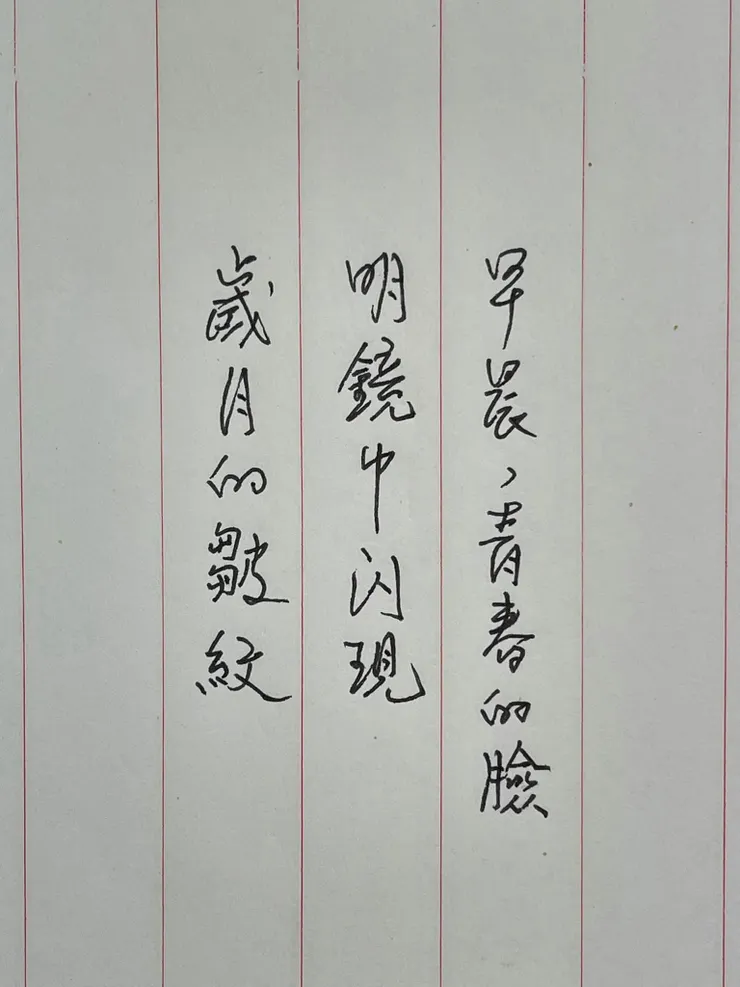 早晨，青春的臉
明鏡中闪現
歲月的皺紋